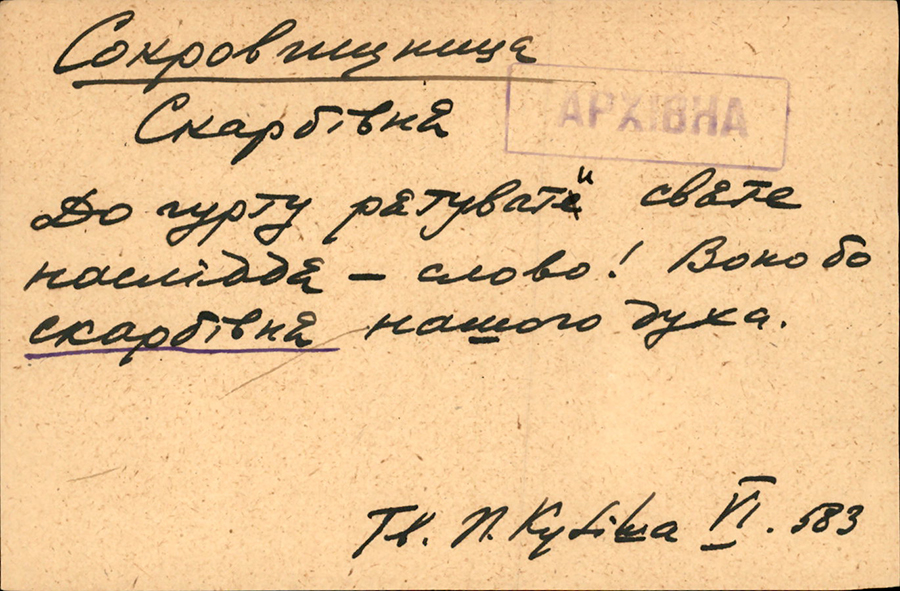 Сокровищница
АРХІВНА
Скарбівня
До гурту рятувати святе
насліддя – слово! Воно бо
скарбівня нашого духа.
Тв. П. Куліша VI. 583